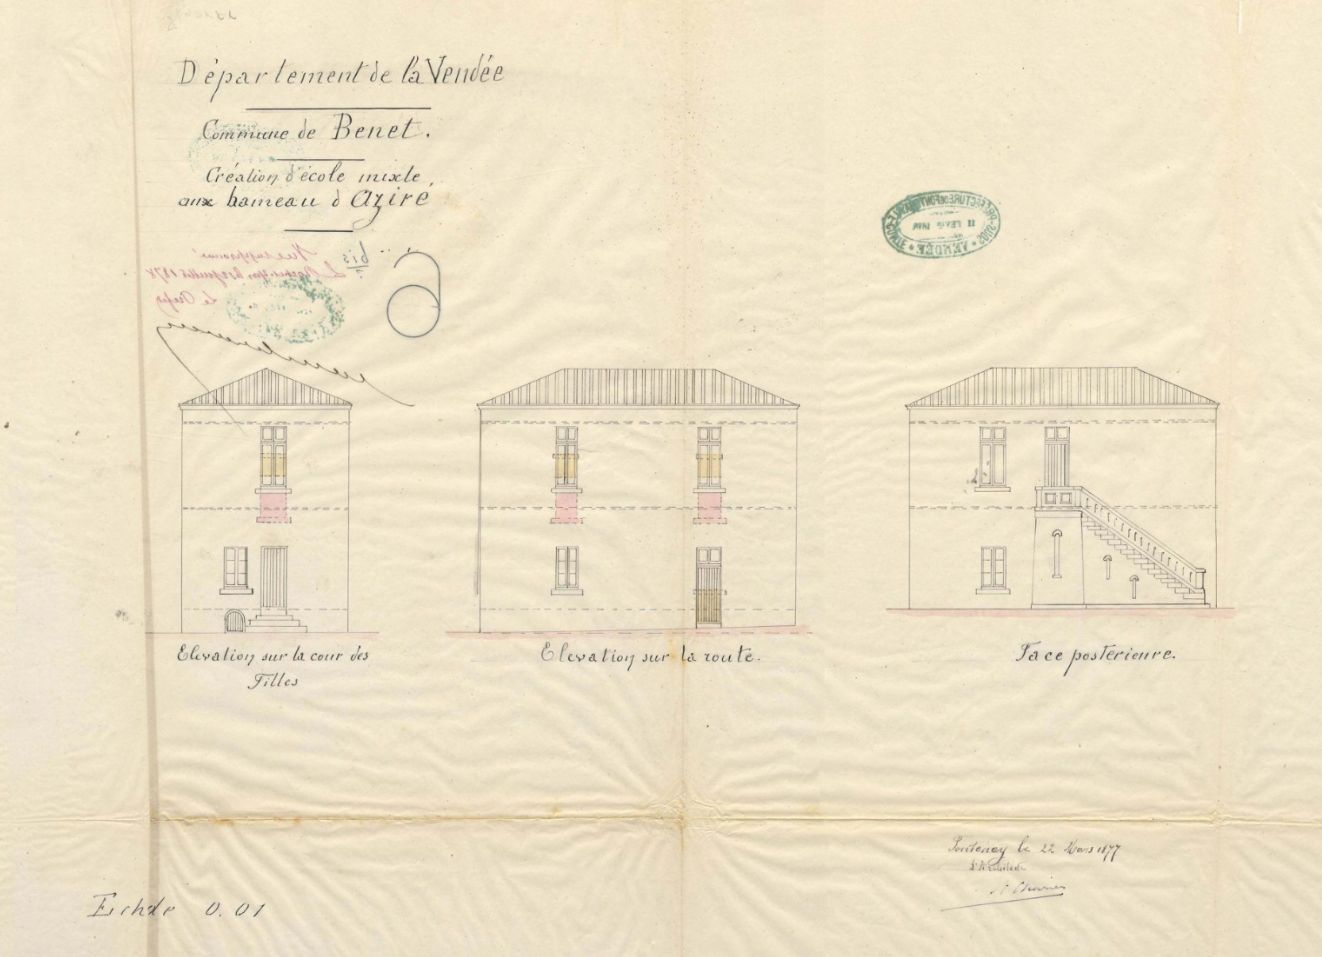 Département de la Vendée
Commune de Benet.
Création d'école mixte
aux hameau d'Aziré
bis
Vu et approuvé
Le Préfet
6
SOUS-PRÉFECTURE DE FONTENAY-LE-COMTE
VENDÉE
Elévation sur la cour des
Filles
Elévation sur la route.
Face postérieure.
Fontenay le 22 Mars 1877
L'Architecte
Echele 0.01